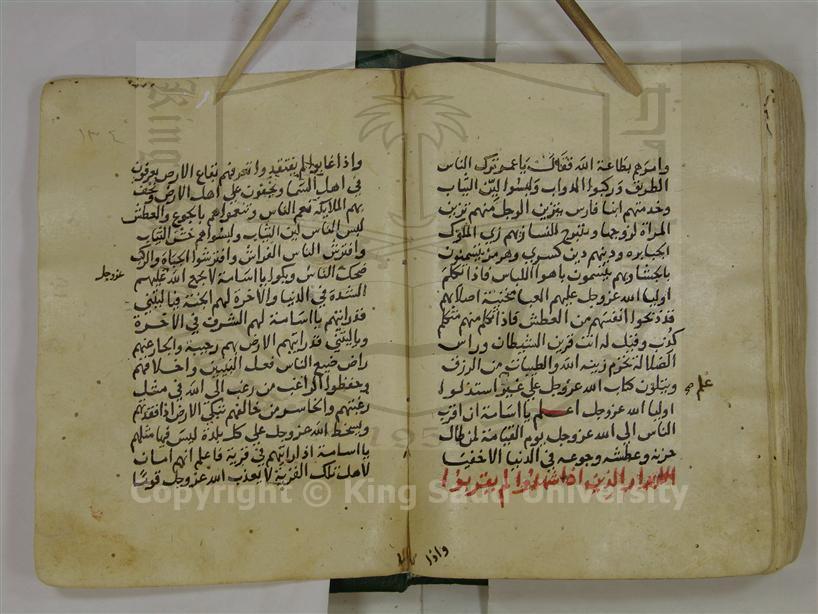 وامرهم بطاعة الله فقال يا عمر ترك الناس
الطريق وركبوا الدواب ولبسوا لين الثياب
وخدمتهم ابنا فارس يتزين الرجل منهم تزين
المراة لزوجها وتتبرج النسا زيهم زي الملوك
الجبابره ودينهم دين كسرى وهرمز يتسمنون
يتسمون باهوا اللباس فاذا تكلم
اوليا الله عز وجل عليهم العبا منحنية اصلابهم
قد ذبحوا انفسهم من العطش فاذا تكلم منهم متكلم
كذب وقيل له انت قرين الشيطان وراس
الضلالة تحرم زينه الله والطيبات من الرزق
ويتلون كتاب الله عز وجل على غير استذلوا
علم
اوليا الله عز وجل اعلم يا اسامة ان اقرب
الناس الى الله عز وجل يوم القيامة لمن طال
حزنه وعطشه وجوعه في الدنيا الاخفيا
الابرار الذين اذا شهدوا لم يقربوا
واذا
١٣٤
واذا غابوا لم يفتقدوا تعرفهم بقاع الارض يعرفون
في اهل السما ويخفون على اهل الارض وتحف
بهم الملايكة تنعم الناس وتنعموا هم بالجوع والعطش
لبس الناس لين الثياب ولبسوا هم خشن الثياب
وافترش الناس الفراش وافترشوا الجباه والركب
ضحك الناس وبكوا يا اسامة لا يجمع الله عليهم
عز وجل
الشدة في الدنيا والاخرة لهم الجنة فيا ليتني
قد رايتهم يا اسامة لهم الشرف في الاخرة
ويا ليتني قد رايتهم الارض بهم رحيبة والجبار عنهم
راض ضيع الناس فعل النبيين واخلاقهم
وحفظوا الراغب من رغب الى الله في مثل
رغبتهم والخاسر من خالفهم تبكي الارض اذا فقدتهم
ويسخط الله عز وجل على كل بلدة ليس فيها مثلهم
يا اسامة اذا رايتهم في قرية فاعلم انهم امان
لاهل تلك القرية لا يعذب الله عز وجل قوما
Copyright © King Saud University